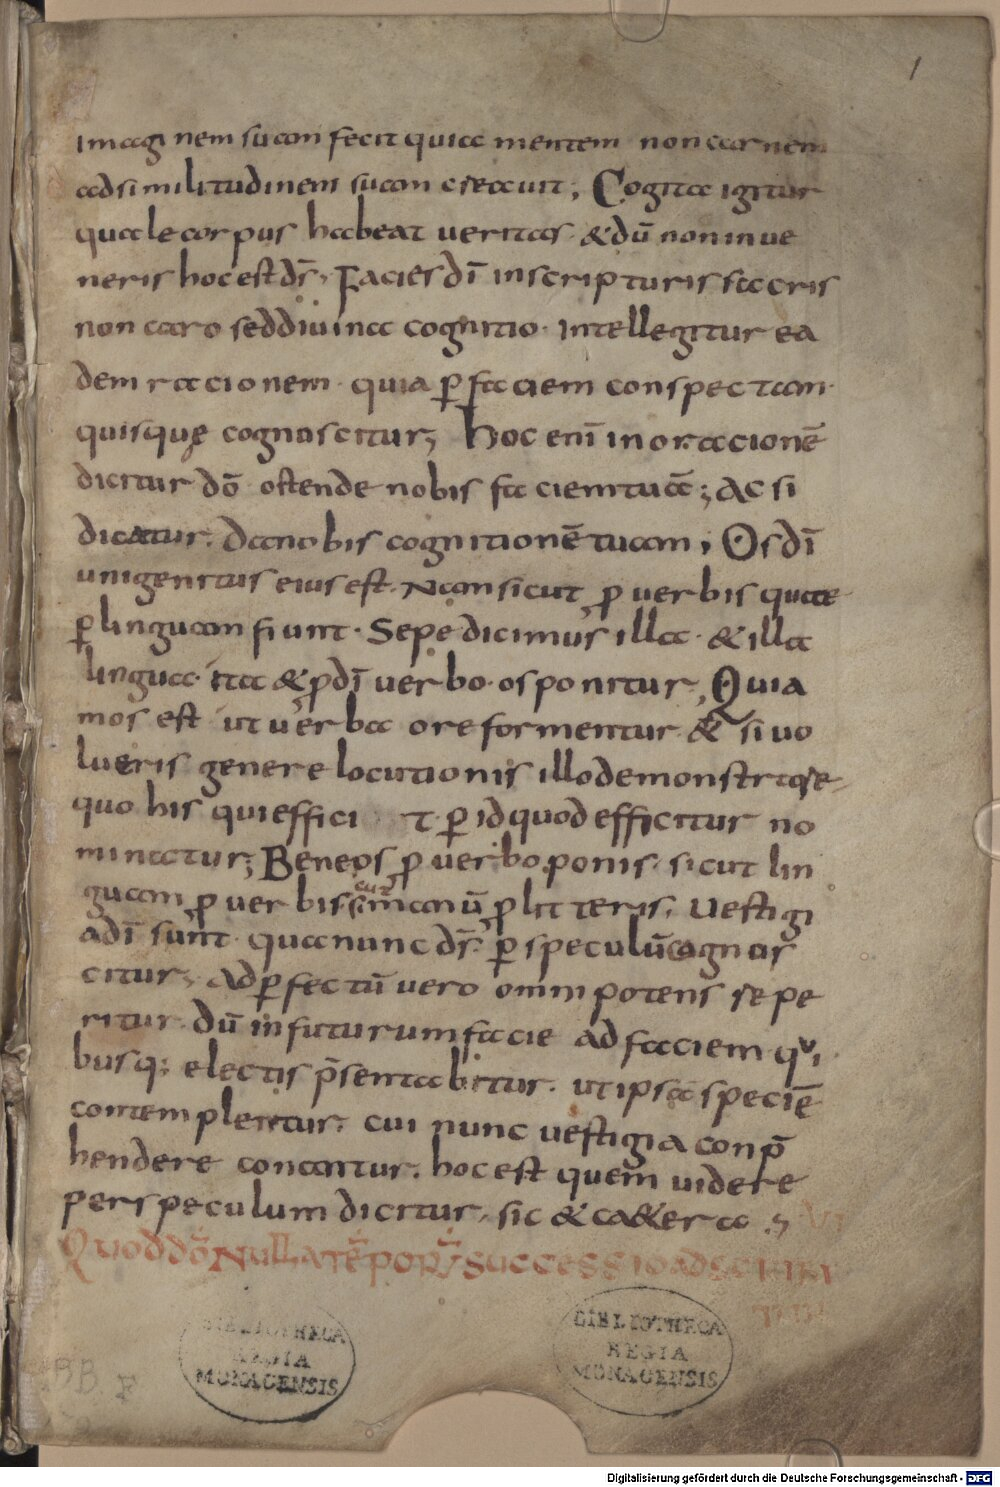 1
imaginem suam fecit quia mentem non carnem
ad similitudinem suam creauit; Cogita igitur
quale corpus habeat ueritas · & dū non inue
neris hoc est dś; Facies dī in scripturis sacris
non caro sed diuina cognitio · intellegitur ea
dem racionem · quia ꝑ faciem conspectam ·
quisque cognoscitur; hoc enī in oracionē
dicitur dō ostende nobis faciem tuā; ac si
dicatur. da nobis cognitionē tuam; Os dī
unigenitus eius est. Nam sicut ꝓ uerbis quae
ꝑ linguam fiunt · Sepe dicimus illa · & illa
lingua · ita & ꝓ dī uerbo · os ponitur; Quia
mos est ut uerba ore formentur & si uo
lueris genere locutionis illo demonstra
quo his qui effici t · ꝑ id quod efficitur no
minatur; Bene os ꝓ uerbo ponis · sicut lin
guam ꝓ uerbis sicut manū ꝓ litteris; Uestigi
a dī sunt · qua nunc dś · ꝑ speculū cognos
citur; ad ꝑfectū uero omnipotens repe
ritur · dū in futurum facie ad faciem · qui
busq; electis p̄sentabitur · ut ipsā speciē
contemplentur; cui nunc uestigia conp̄
hendere conantur; hoc est quem uidere
per speculum dicitur, sic & ca&era ;
Quod dō nulla tēporū successio ad
BIBLIOTHECA
REGIA
MONACENSIS
BIBLIOTHECA
REGIA
MONACENSIS
Digitalisierung gefördert durch die Deutsche Forschungsgemeinschaft - DFG